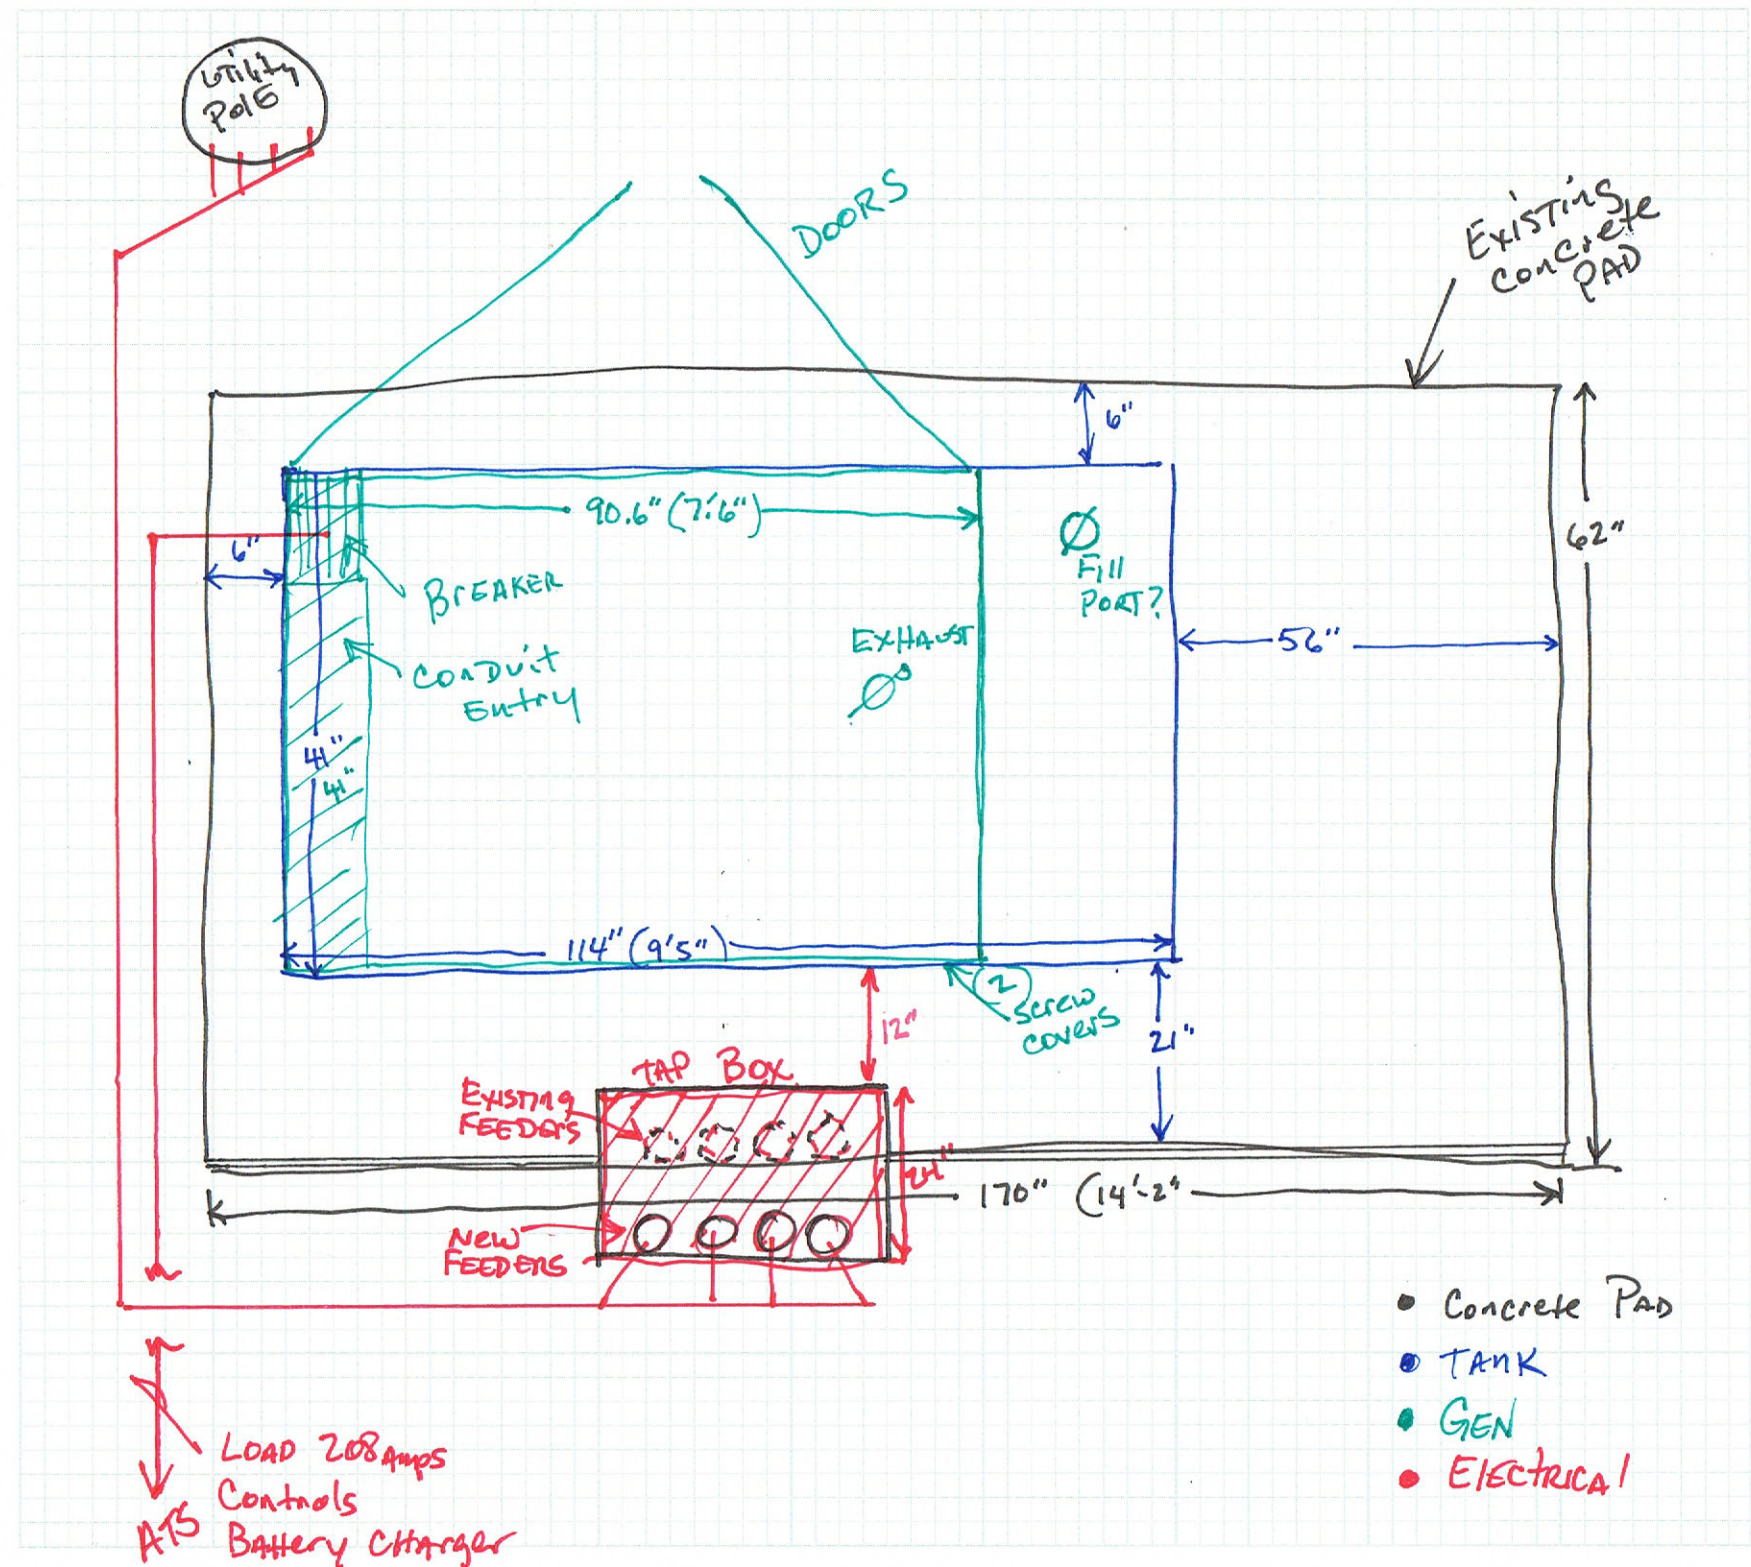 Utility
PolE
DOORS
Existing
concrete
PAD
6"
90.6" (7'6")
62"
6"
Fill
PORT?
BrEAKER
EXHAUST
56"
Conduit
Entry
41"
41"
114" (9'5")
(2)
Screw
covers
12"
21"
TAP BOX
Existing
FEEDERS
24"
170" (14'-2"
NEW
FEEDERS
Concrete PAD
TANK
GEN
ElECtRICAl
LOAD 208 Amps
Controls
BAttery CHArger
ATS